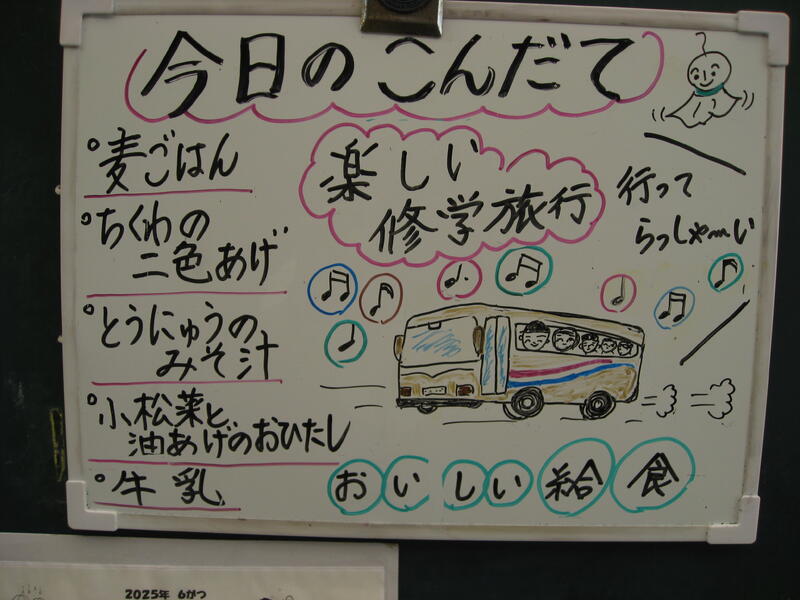 今日のこんだて
麦ごはん
ちくわの
二色あげ
とうにゅうの
みそ汁
小松菜と
油あげのおひたし
牛乳
楽しい
修学旅行
行って
らっしゃ〜い
おいしい給食
2025年 6がつ